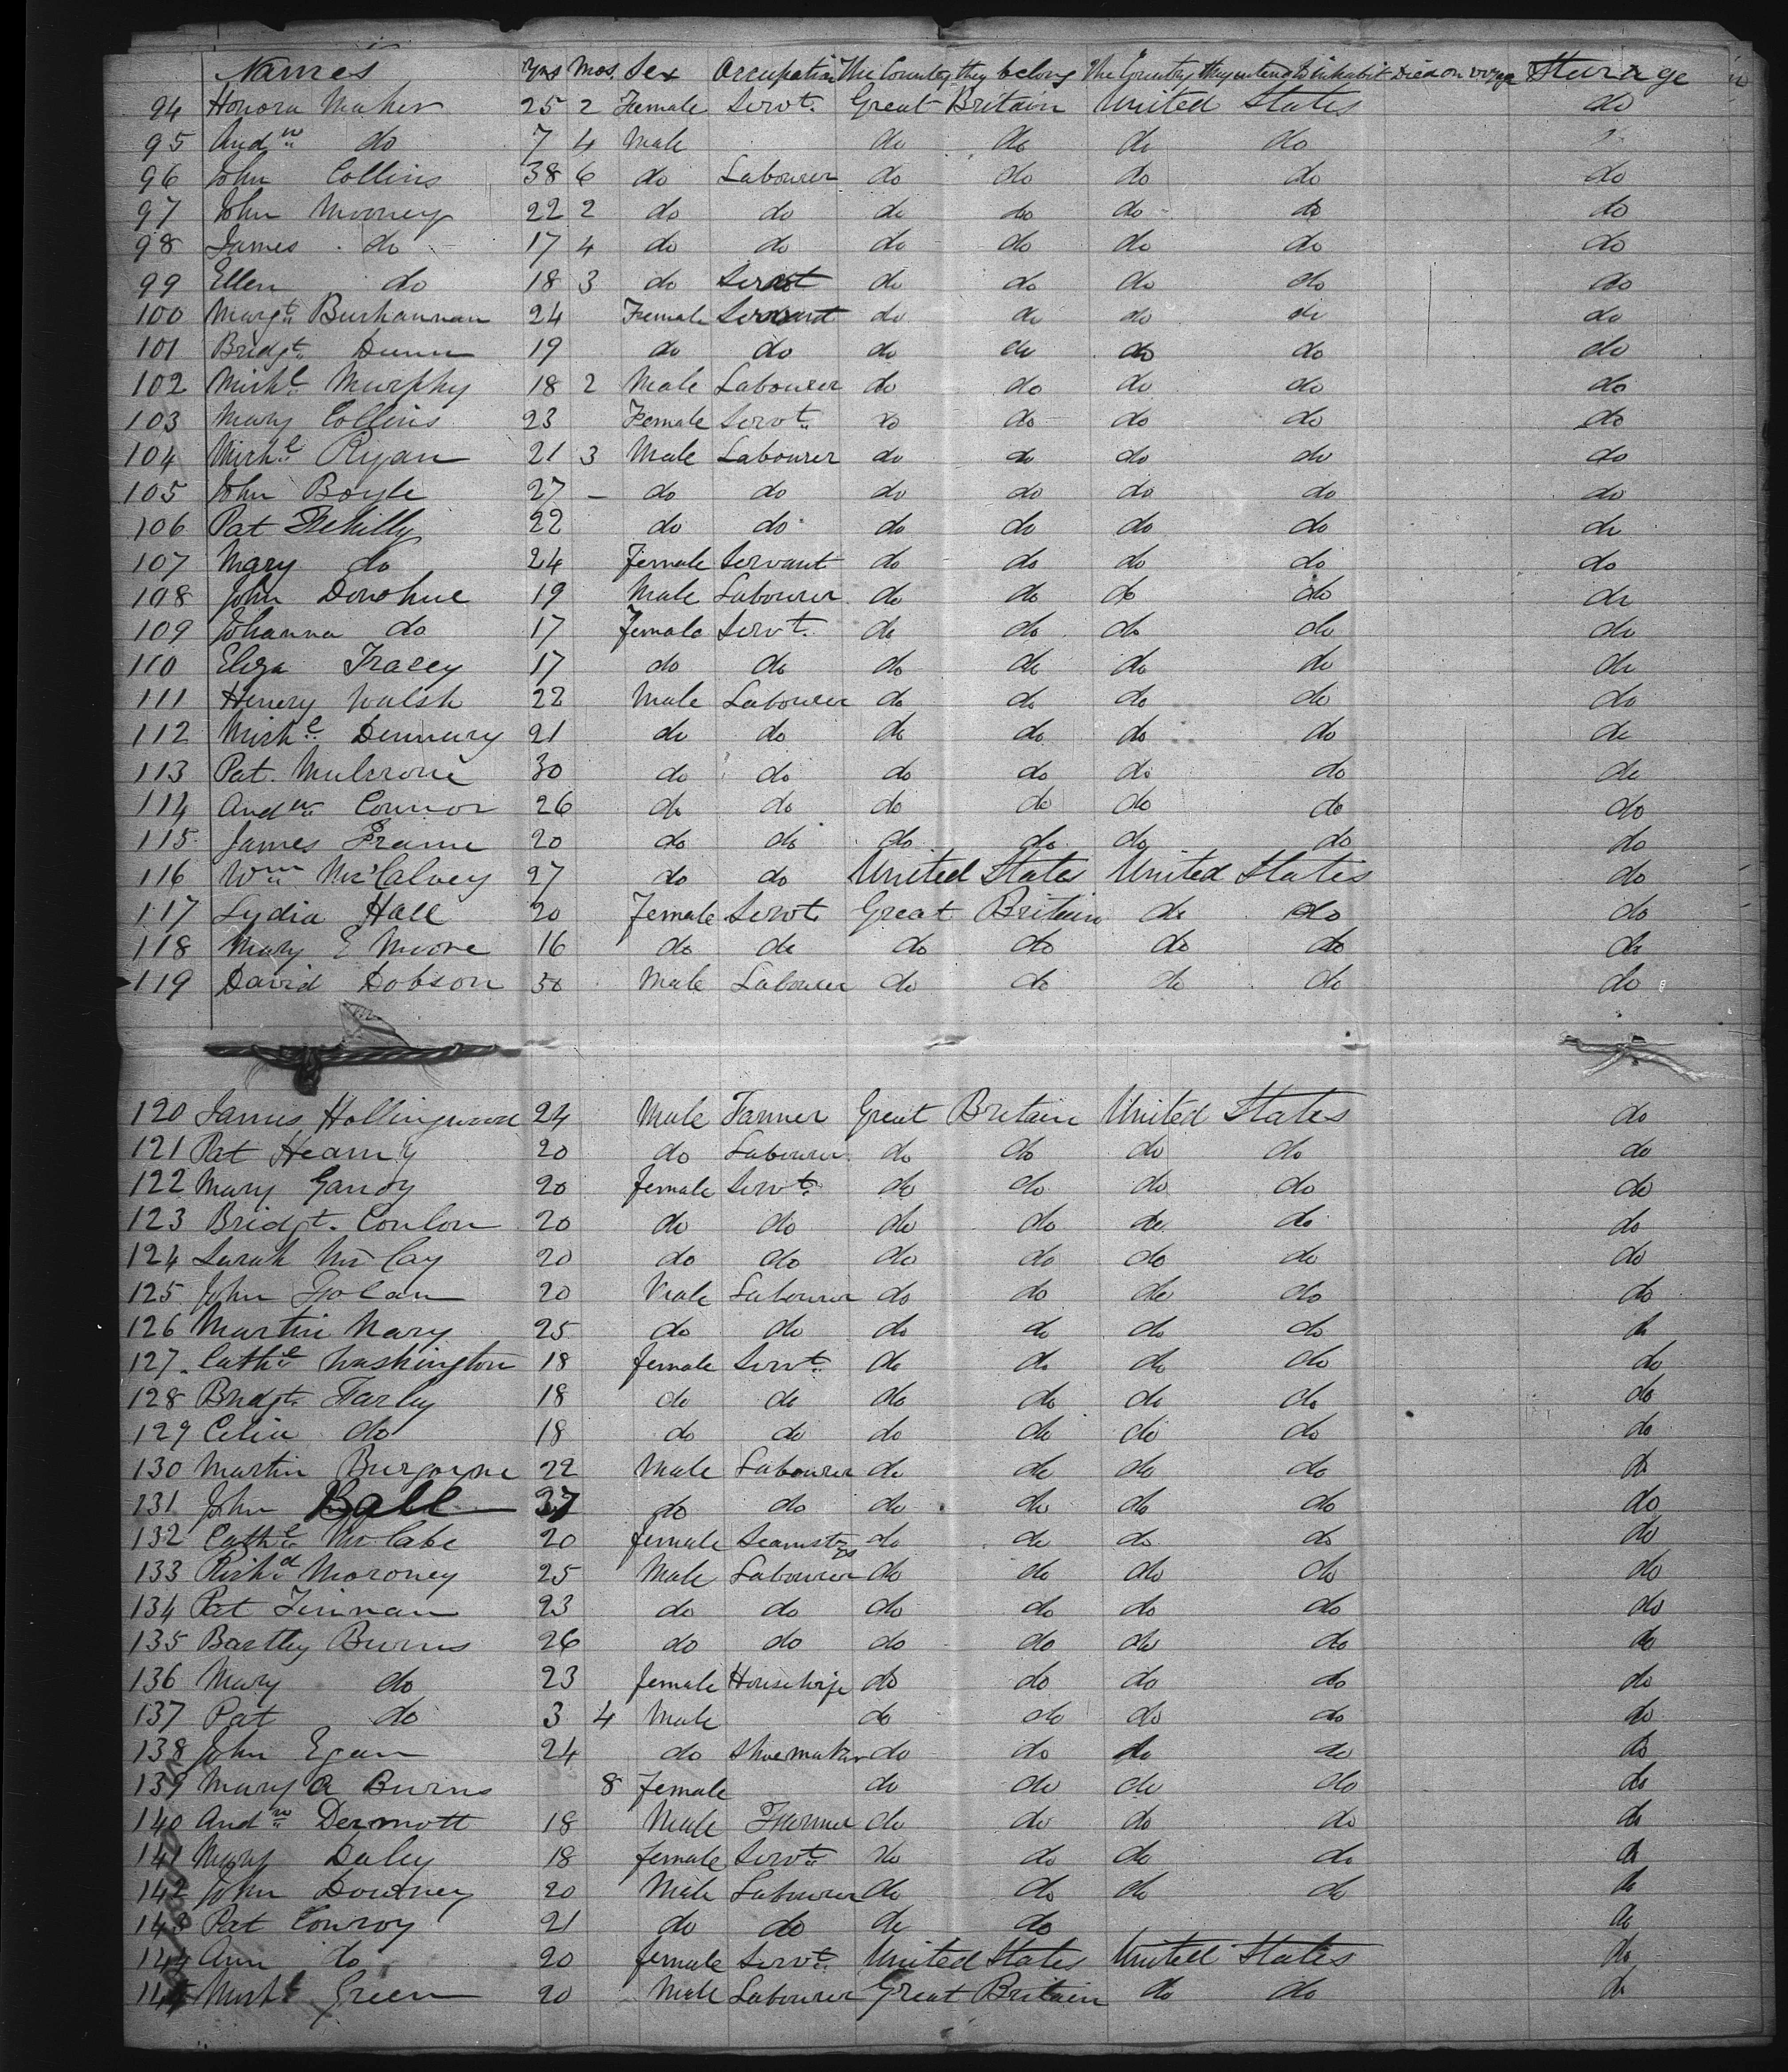 Names Yrs Mos. Sex Occupation The Country they belong The Country they intend to inhabit Died on voyage Sturage
94 Honora Maher 25 2 Female Servt. Great Britain United States do
95 Andw do 7 4 Male do do do do
96 John Collins 38 6 do Labourer do do do do do
97 John Mooney 22 2 do do do do do do do
98 James do 17 4 do do do do do do do
99 Ellen do 18 3 do Servt do do do do do
100 Margt Buchannan 24 Female Servant do do do do do
101 Bridgt. Dunn 19 do do do do do do do
102 Michl Murphy 18 2 Male Labourer do do do do do
103 Mary Collins 23 Female Servt. do do do do do
104 Michl Ryan 21 3 Male Labourer do do do do do
105 John Boyle 27 – do do do do do do do
106 Pat 22 do do do do do do do
107 Mary do 24 Female Servant do do do do do
108 John Donohue 19 Male Labourer do do do do do
109 Johanna do 17 Female Servt. do do do do do
110 Eliza Tracey 17 do do do do do do do
111 Henery Walsh 22 Male Labourer do do do do do
112 Michl Dennery 21 do do do do do do do
113 Pat. Mulrone 30 do do do do do do do
114 Andw Connor 26 do do do do do do do
115 James Frame 20 do do do do do do do
116 Wm McCalvey 27 do do United States United States do
117 Lydia Hall 20 Female Servt. Great Britain do do do
118 Mary E Moore 16 do do do do do do do
119 David Dobson 30 Male Labourer do do do do do
120 James Hollingwood 24 Male Farmer Great Britain United States do
121 Pat Heamy 20 do Labourer do do do do do
122 Mary Gandy 20 female Servt. do do do do do
123 Bridgt. Conlon 20 do do do do do do do
124 Sarah McCay 20 do do do do do do do
125 John Folan 20 Male Labourer do do do do do
126 Martin Nary 25 do do do do do do do
127 Cathe Washington 18 female Servt. do do do do do
128 Bridgt. Farley 18 do do do do do do do
129 Celia do 18 do do do do do do do
130 Martin Burgoyne 22 Male Labourer do do do do do
131 John Ball 37 do do do do do do do
132 Cathe McCabe 20 female Seamstrss do do do do do
133 Richd Moroney 25 Male Labourer do do do do do
134 Pat Finnan 23 do do do do do do do
135 Bartley Burns 26 do do do do do do do
136 Mary do 23 female Housewife do do do do do
137 Pat do 3 4 Male do do do do do
138 John Egan 24 do Shoemaker do do do do do
139 Mary A Burns 8 female do do do do do
140 Andw Dermott 18 Male Farmer do do do do do
141 Mary Daley 18 female Servt. do do do do do
142 John Downey 20 Male Labourer do do do do do
143 Pat Conroy 21 do do do do do
144 Ann do 20 female Servt. United States United States do
145 Michl Green 20 Male Labourer Great Britain do do do